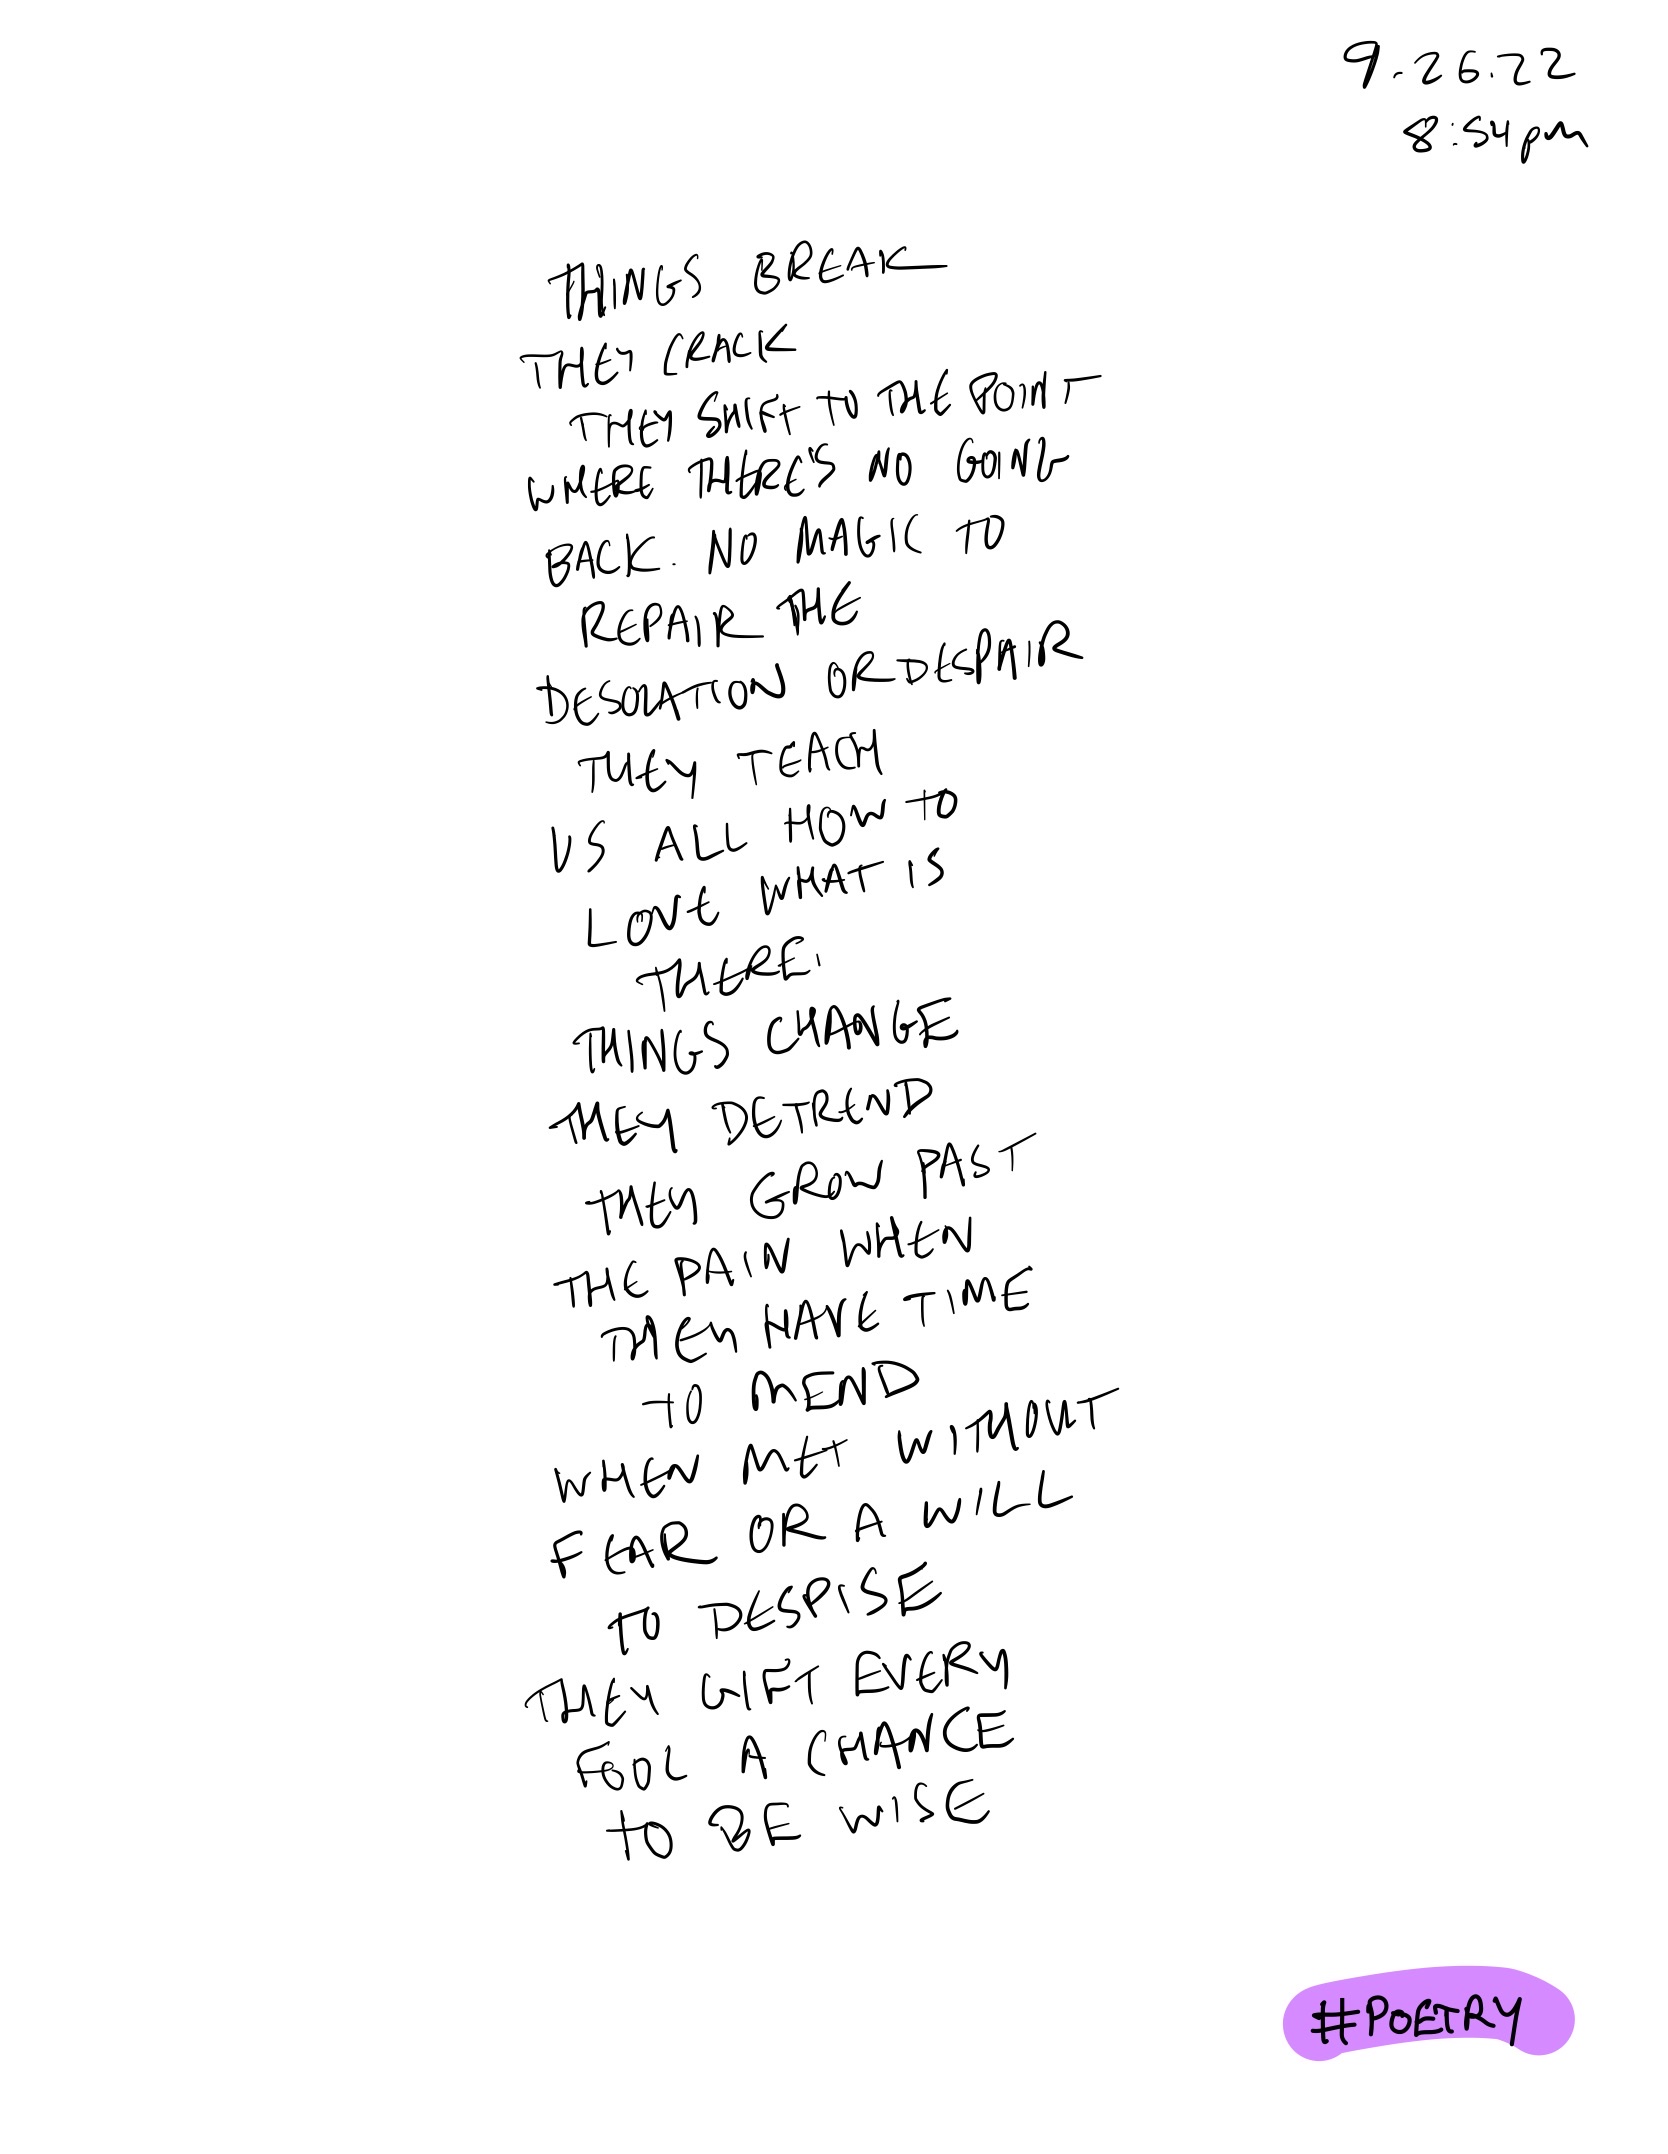 9.26.22
8:54pm
THINGS BREAK
THEY CRACK
THEY SHIFT TO THE POINT
WHERE THERE'S NO GOING
BACK. NO MAGIC TO
REPAIR THE
DESOLATION OR DESPAIR
THEY TEACH
US ALL HOW TO
LOVE WHAT IS
THERE.
THINGS CHANGE
THEY DETREND
THEY GROW PAST
THE PAIN WHEN
THEY HAVE TIME
TO MEND
WHEN MET WITHOUT
FEAR OR A WILL
TO DESPISE
THEY GIFT EVERY
FOOL A CHANCE
TO BE WISE
#POETRY